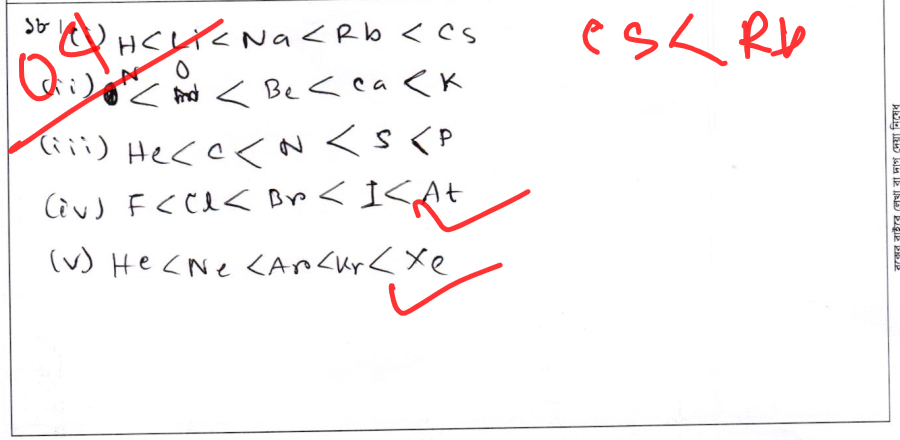 ১৮। (i) H < Li < Na < Rb < Cs
Cs < Rb
04
(ii) N < O < Be < Ca < K
(iii) He < C < N < S < P
(iv) F < Cl < Br < I < At
(v) He < Ne < Ar < Kr < Xe
বক্সের বাইরে লেখা বা দাগ দেয়া নিষেধ